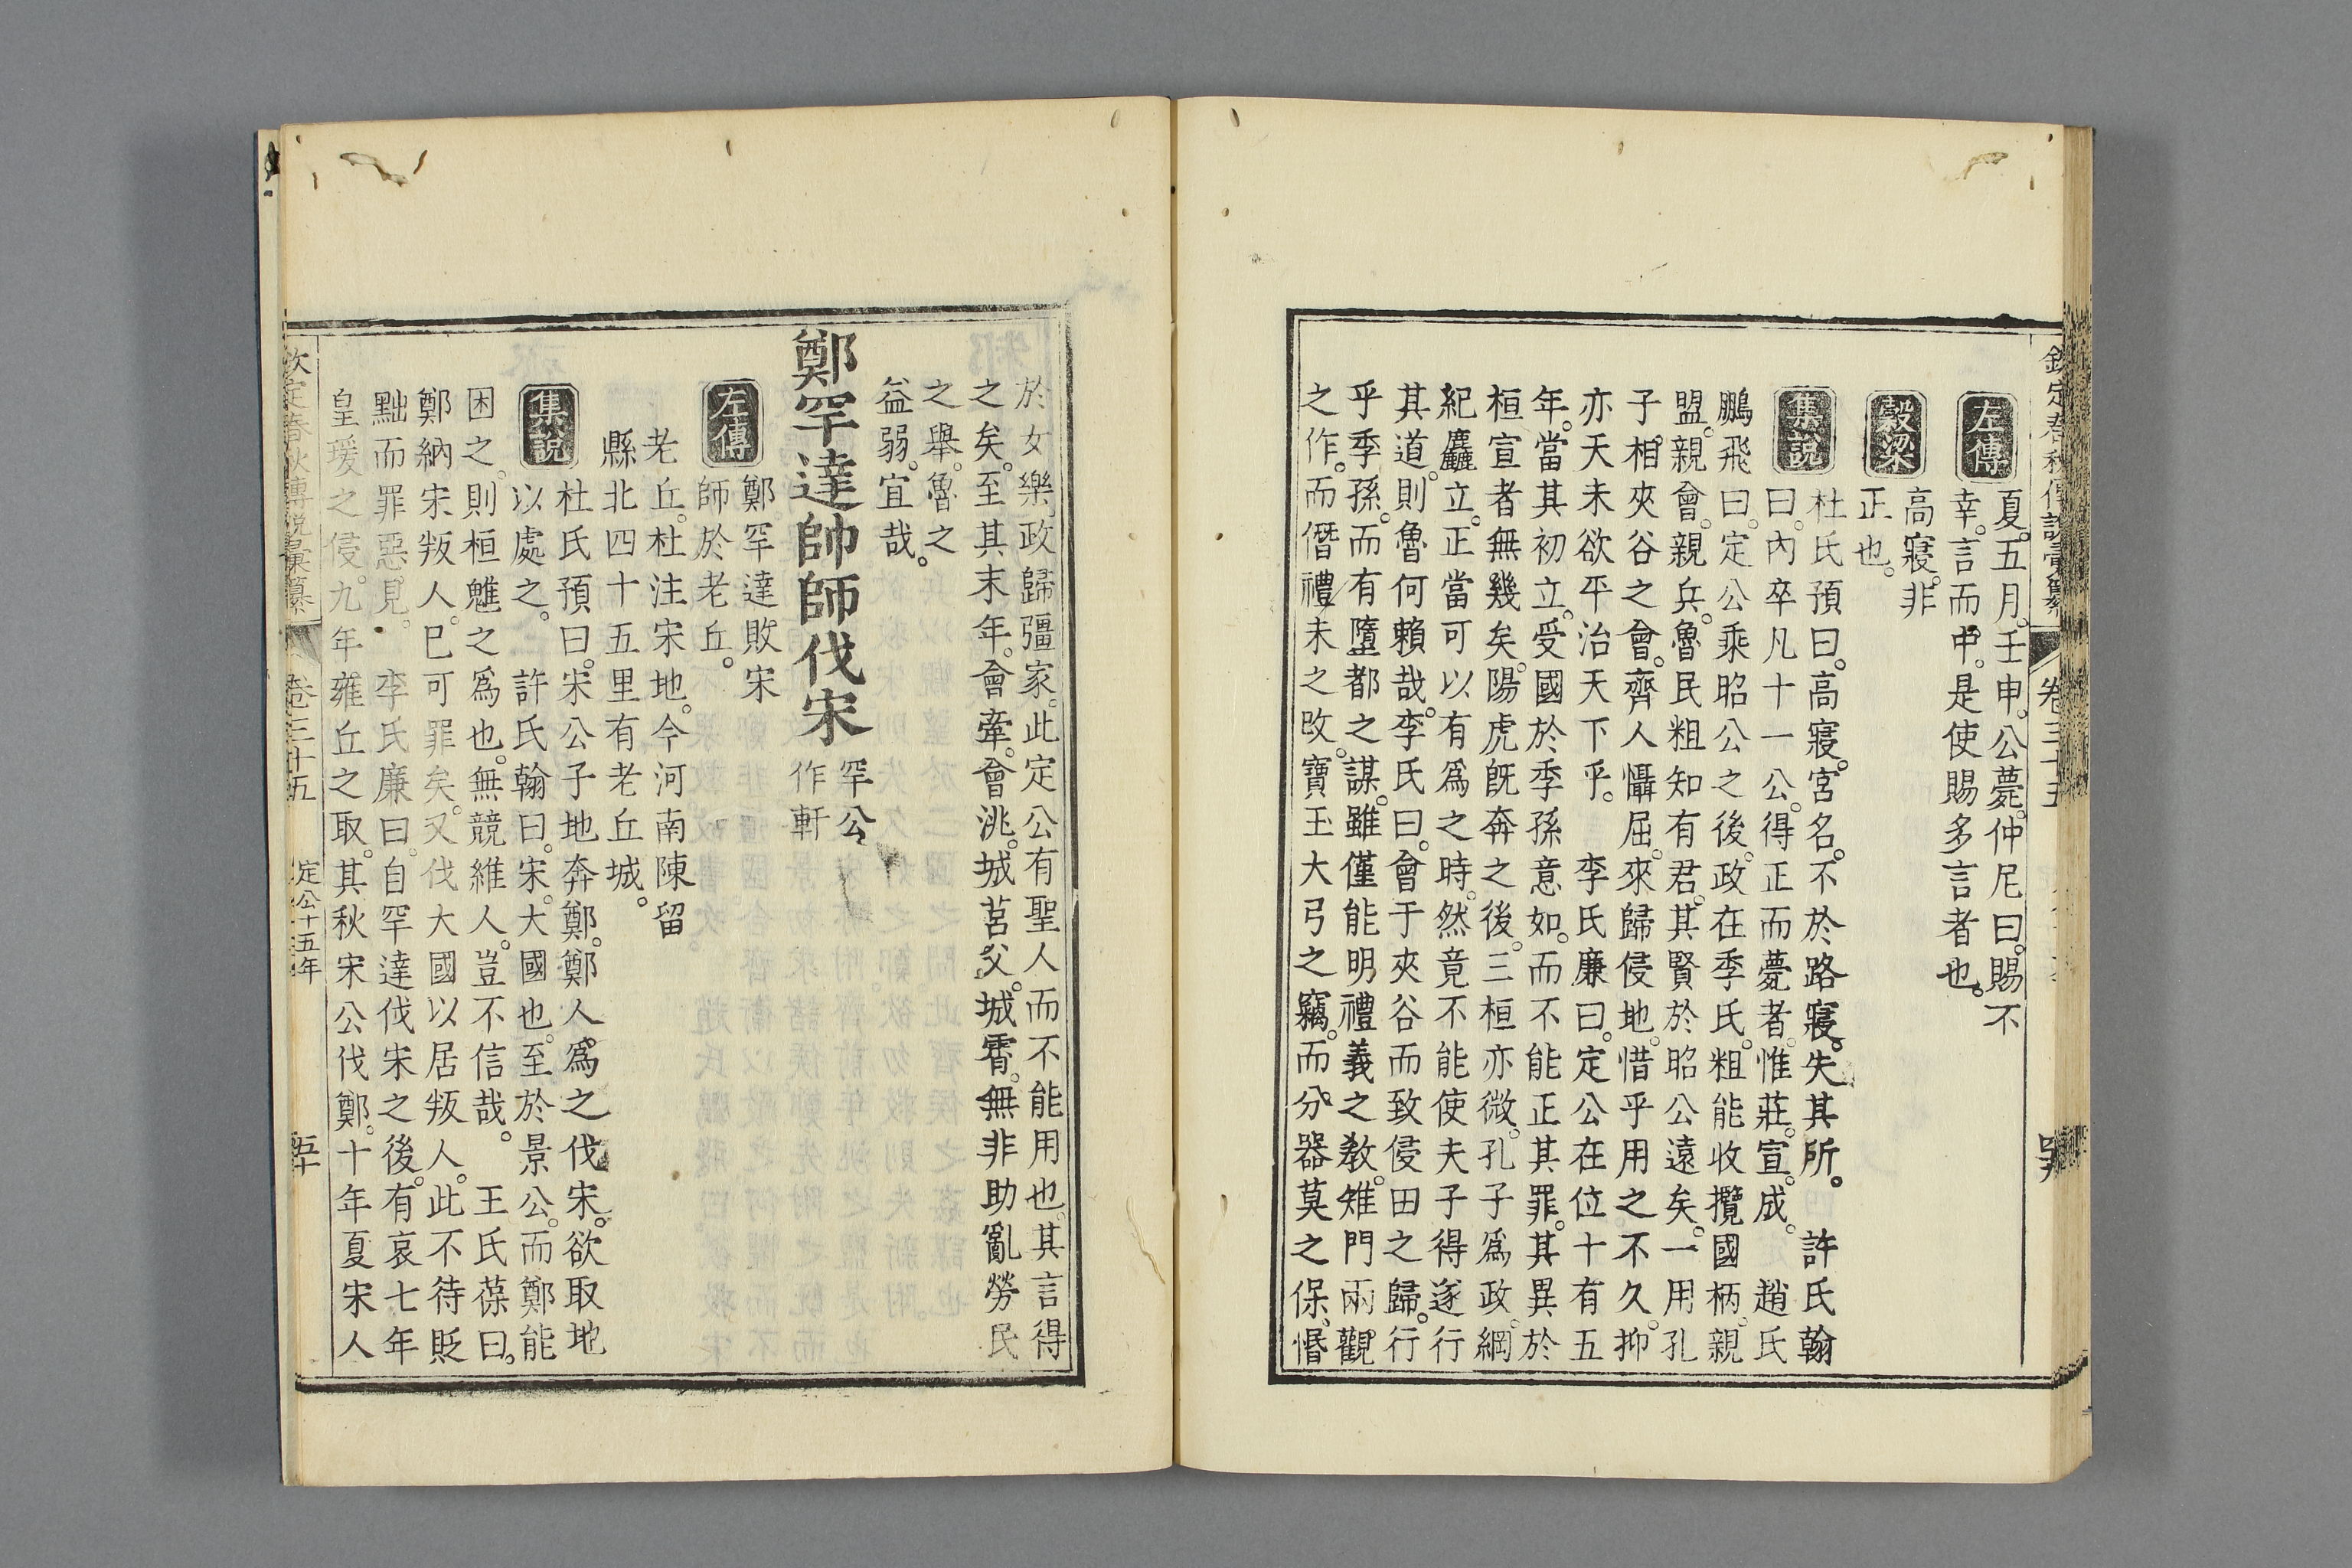 欽定春秋傳說彙纂 卷三十五
左傳 夏。五月。壬申。公薨。仲尼曰。賜不
幸。言而中。是使賜多言者也。
穀梁 高寢。非
正也。
集說 杜氏預曰。高寢。宮名。不於路寢。失其所。 許氏翰
曰。內卒凡十一公。得正而薨者。惟莊。宣。成。 趙氏
鵬飛曰。定公乘昭公之後。政在季氏。粗能收攬國柄。親
盟。親會。親兵。魯民粗知有君。其賢於昭公遠矣。一用孔
子。相夾谷之會。齊人懾屈。來歸侵地。惜乎用之不久。抑
亦天未欲平治天下乎。 李氏廉曰。定公在位十有五
年。當其初立。受國於季孫意如。而不能正其罪。其異於
桓宣者無幾矣。陽虎旣奔之後。三桓亦微。孔子爲政。綱
紀麤立。正當可以有爲之時。然竟不能使夫子得遂行
其道。則魯何賴哉。李氏曰。會于夾谷而致侵田之歸。行
乎季孫。而有墮都之謀。雖僅能明禮義之敎。雉門兩觀
之作。而僭禮未之改。寶玉大弓之竊。而分器莫之保。惛
於女樂。政歸彊家。此定公有聖人而不能用也。其言得
之矣。至其末年。會牽。會洮。城莒父。城霄。無非助亂勞民
之舉。魯之
益弱。宜哉。
鄭罕達帥師伐宋 罕公
作軒
左傳 鄭罕達敗宋
師於老丘。
老丘。杜注宋地。今河南陳留
縣北四十五里有老丘城。
集說 杜氏預曰。宋公子地奔鄭。鄭人爲之伐宋。欲取地
以處之。 許氏翰曰。宋。大國也。至於景公。而鄭能
困之。則桓魋之爲也。無競維人。豈不信哉。 王氏葆曰。
鄭納宋叛人。已可罪矣。又伐大國以居叛人。此不待貶
黜而罪惡見。 李氏廉曰。自罕達伐宋之後。有哀七年
皇瑗之侵。九年雍丘之取。其秋宋公伐鄭。十年夏宋人
欽定春秋傳說彙纂 卷三十五 定公十五年 五十